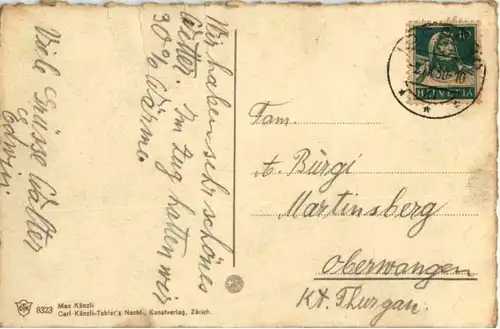 Wir haben sehr schönes
Wetter. Im Zug hatten wir
30% Wärme
Viele Grüsse Walter
Edwin.
Fam.
A. Bürgi
Martinsberg
Oberwangen
Kt. Thurgau.
10
HELVETIA
8323
Max Künzli
Carl Künzli-Tobler's Nachf., Kunstverlag, Zürich.